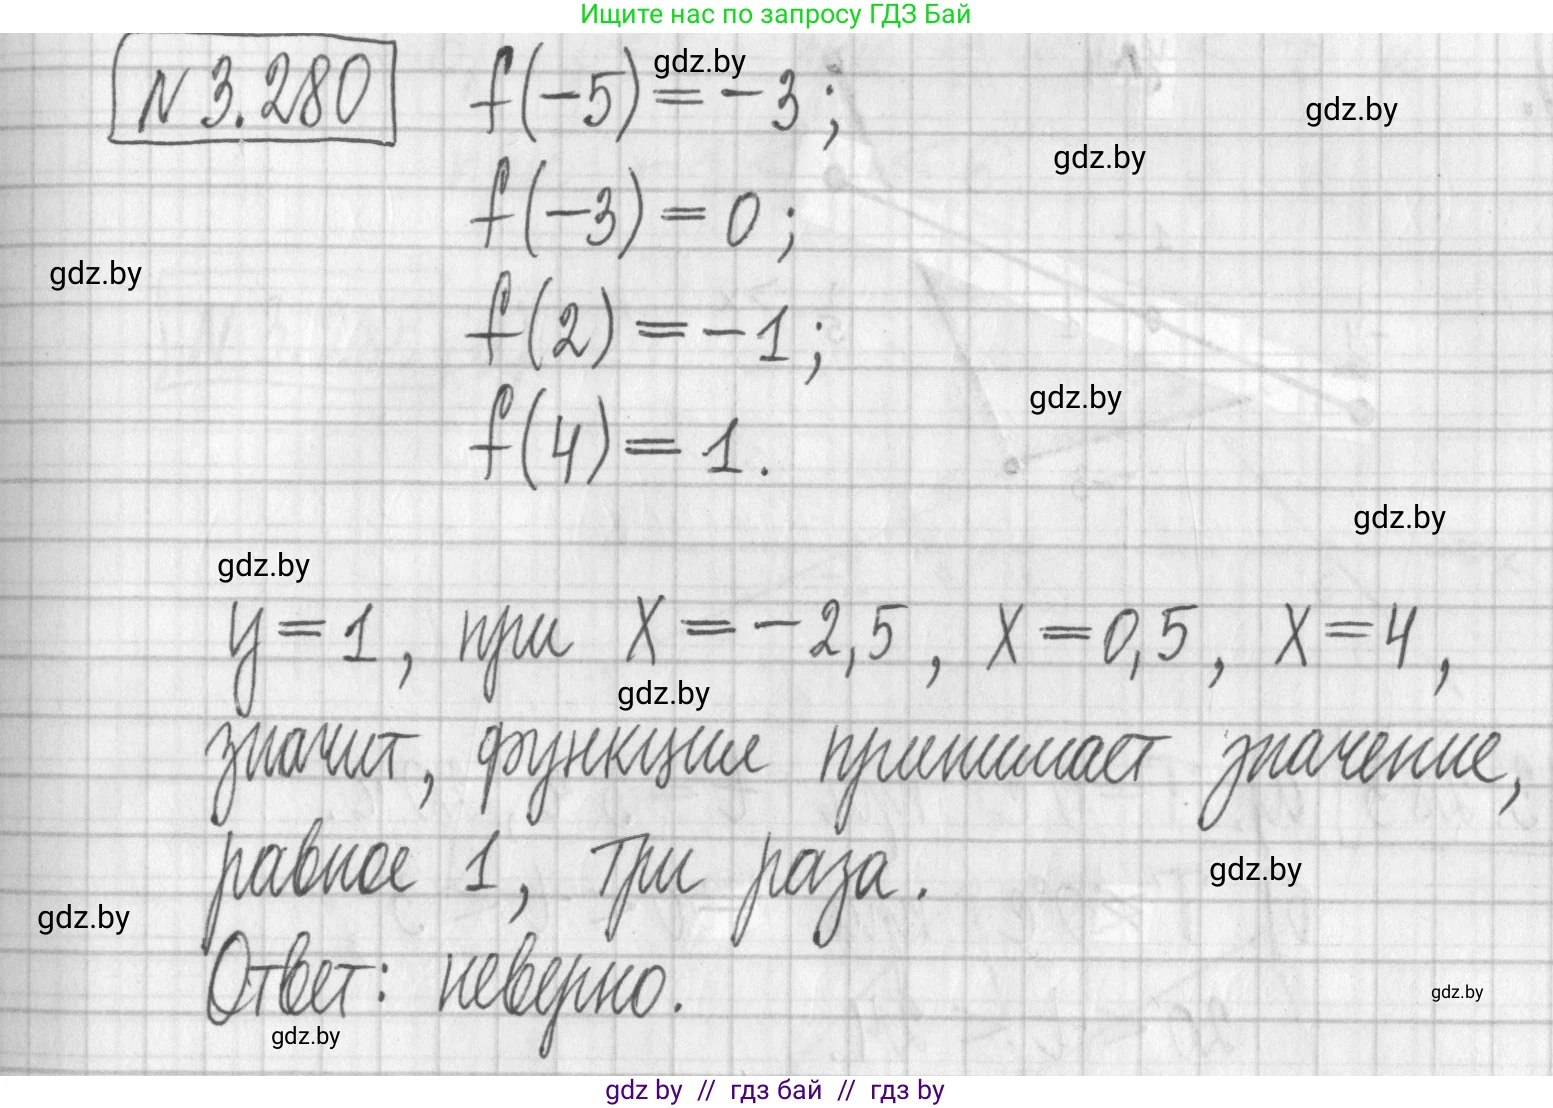 Ищите нас по запросу ГДЗ Бай
N 3.280 f(-5) = -3;
gdz.by
gdz.by
gdz.by
f(-3) = 0;
gdz.by
f(2) = -1;
gdz.by
f(4) = 1.
gdz.by
gdz.by
y = 1, при X = -2,5, X = 0,5, X = 4,
gdz.by
значит, функция принимает значение,
равное 1, три раза.
gdz.by
gdz.by
Ответ: неверно.
gdz.by
gdz.by
gdz by // гдз бай // гдз by